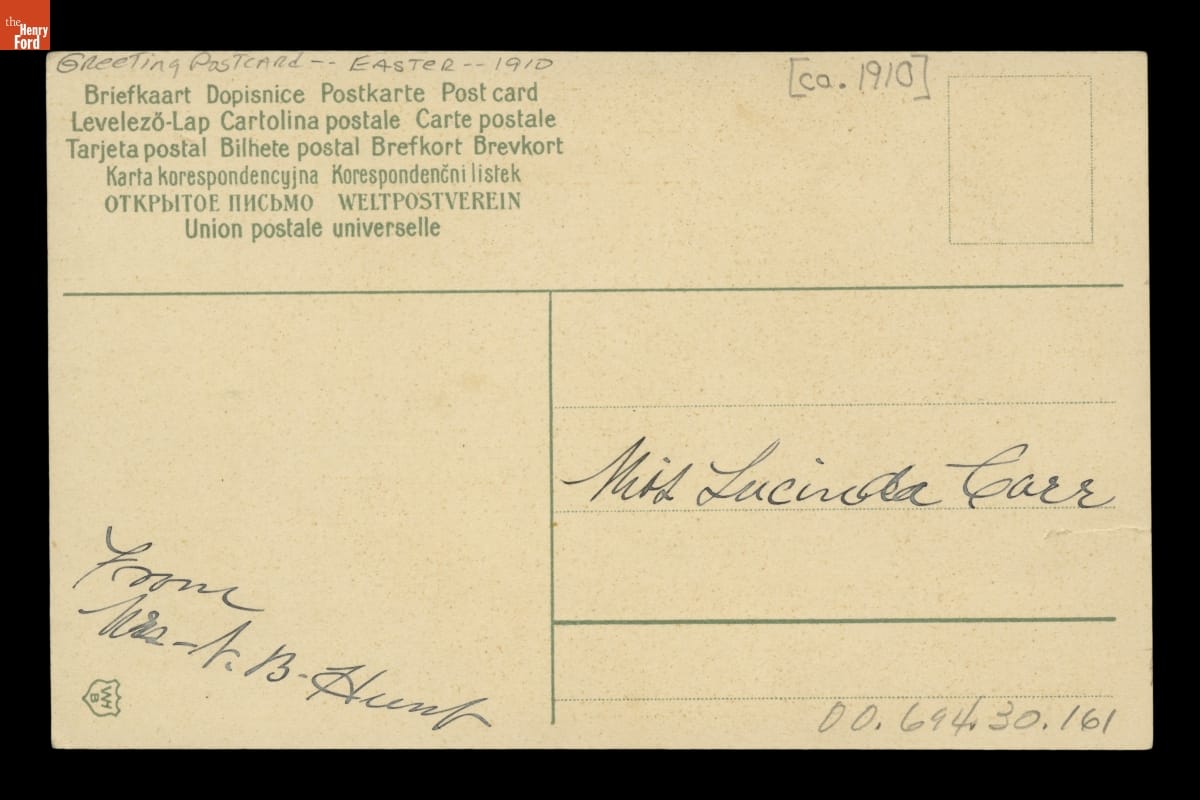 the
Henry
Ford
Greeting Postcard -- Easter -- 1910
[ca. 1910]
Briefkaart Dopisnice Postkarte Post card
Levelező-Lap Cartolina postale Carte postale
Tarjeta postal Bilhete postal Brefkort Brevkort
Karta korespondencyjna Korespondenčni listek
ОТКРЫТОЕ ПИСЬМО WELTPOSTVEREIN
Union postale universelle
Miss Lucinda Carr
From
Mrs - N. B. Hunt
WH
B
00.694.30.161